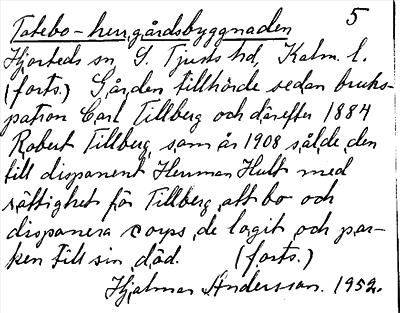 Totebo-herrgårdsbyggnaden 5
Hjorteds sn, S. Tjusts hd, Kalm. l.
(forts.) Gården tillhörde sedan bruks-
patron Carl Tillberg och därefter 1884
Robert Tillberg, som år 1908 sålde den
till disponent Herman Hult med
rättighet för Tillberg att bo och
disponera corps de logit och par-
ken till sin död. (forts.)
Hjalmar Andersson. 1952.